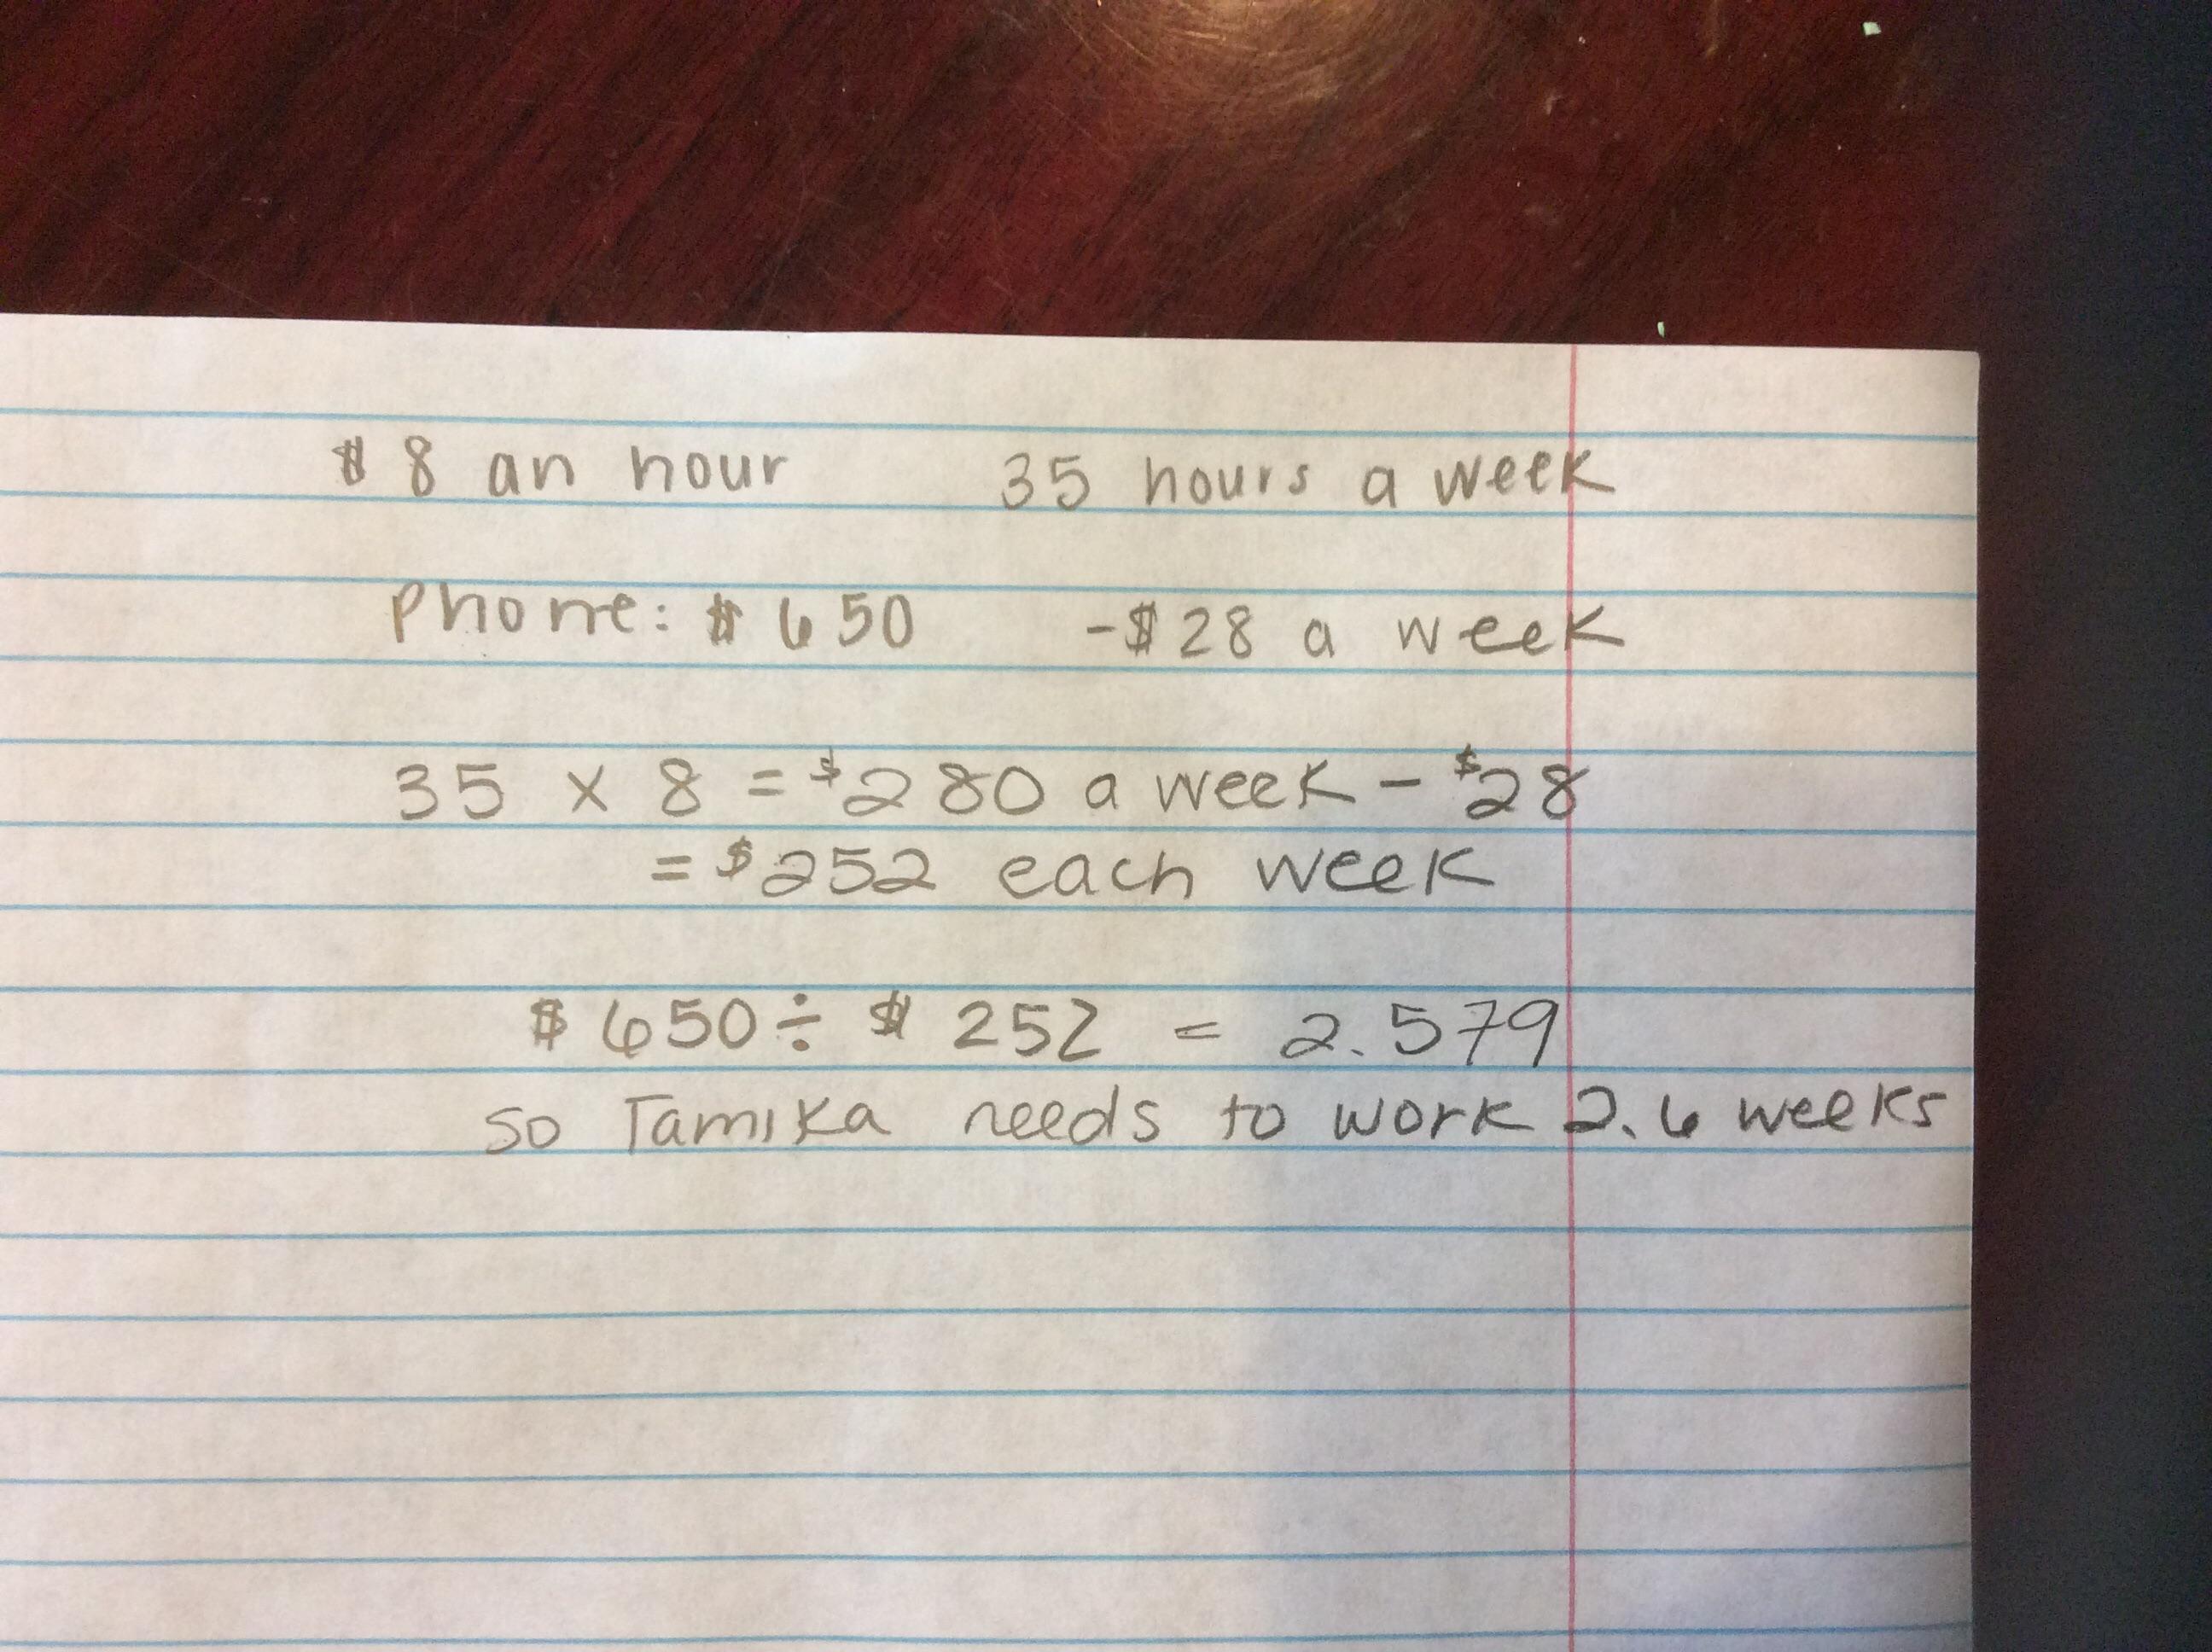 $8 an hour 35 hours a week
Phone: $650 -$28 a week
35 x 8 = $280 a week - $28
= $252 each week
$650 ÷ $252 = 2.579
so Tamika needs to work 2.6 weeks